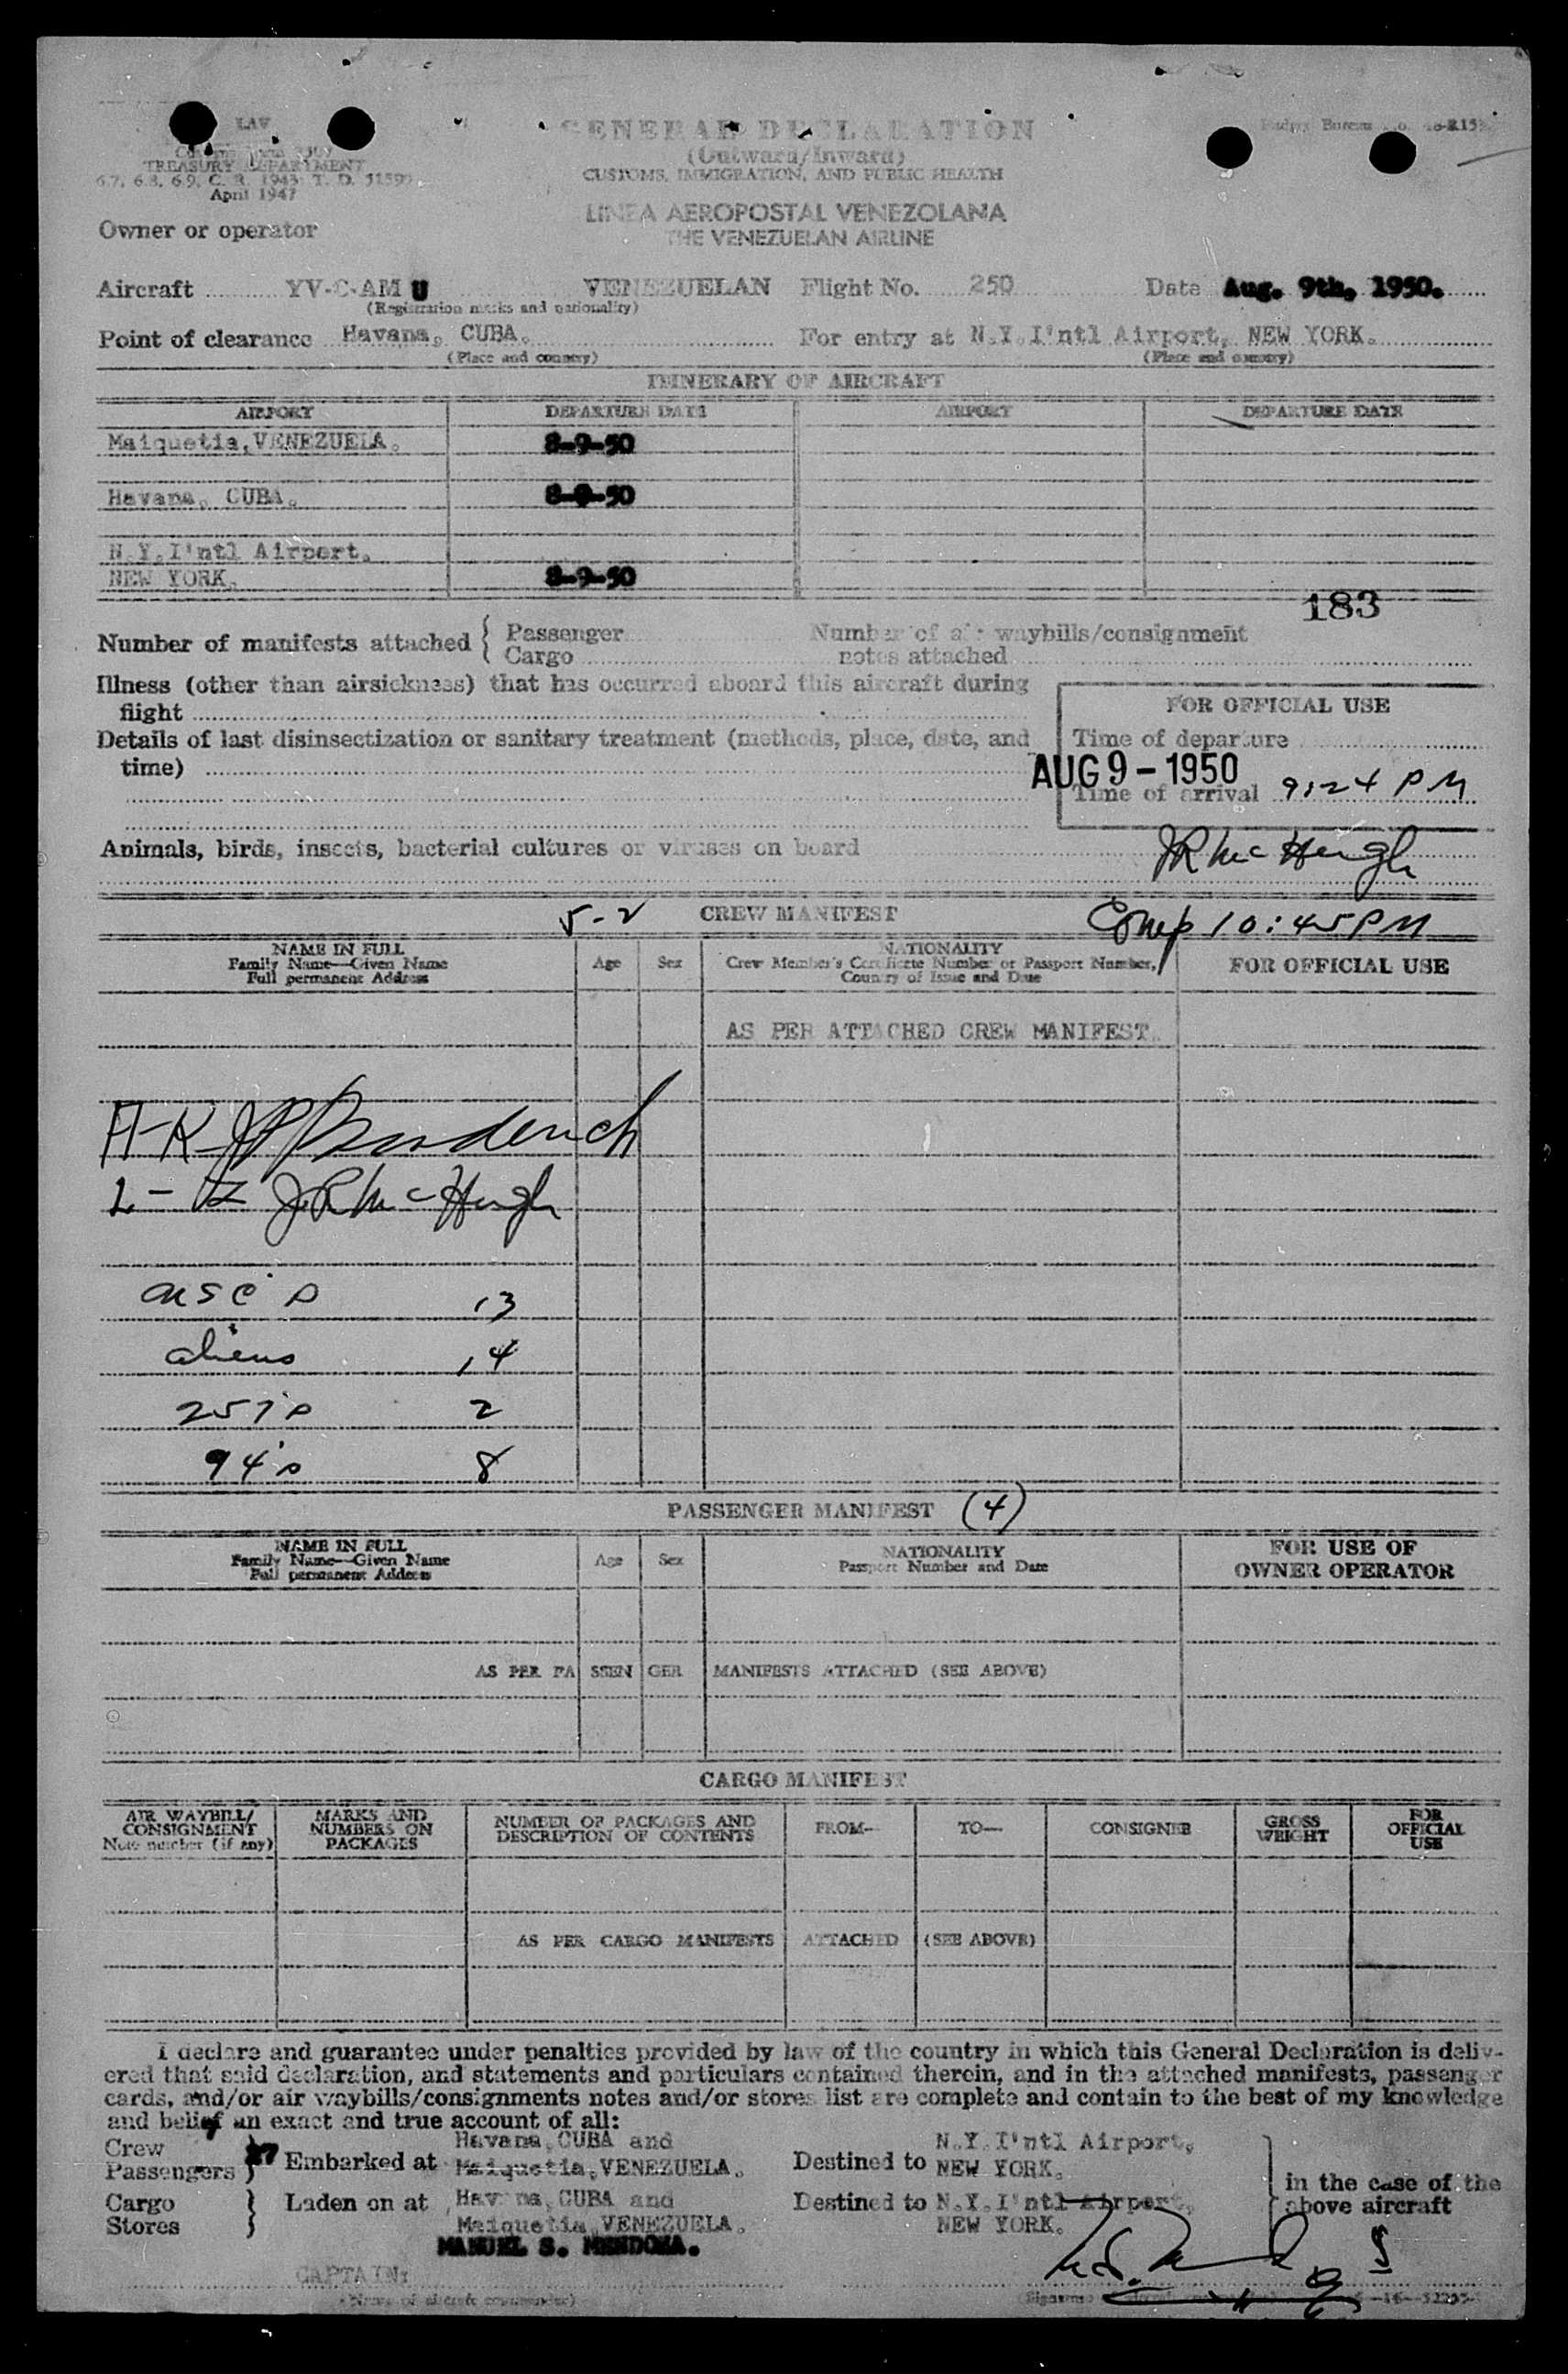 LAV
TREASURY DEPARTMENT
6.7, 6.8, 6.9, C. R. 1943; T. D. 51597
April 1947
GENERAL DECLARATION
(Outward/Inward)
CUSTOMS, IMMIGRATION, AND PUBLIC HEALTH
LINEA AEROPOSTAL VENEZOLANA
THE VENEZUELAN AIRLINE
Owner or operator
Aircraft YV-C-AM U VENEZUELAN Flight No. 250 Date Aug. 9th, 1950.
(Registration marks and nationality)
Point of clearance Havana, CUBA. For entry at N.Y.I'ntl Airport, NEW YORK.
(Place and country) (Place and country)
ITINERARY OF AIRCRAFT
AIRPORT DEPARTURE DATE AIRPORT DEPARTURE DATE
Maiquetia, VENEZUELA. 8-9-50
Havana, CUBA. 8-9-50
N.Y.I'ntl Airport.
NEW YORK. 8-9-50
183
Number of manifests attached { Passenger Number of air waybills/consignment
Cargo notes attached
Illness (other than airsickness) that has occurred aboard this aircraft during
flight
FOR OFFICIAL USE
Details of last disinsectization or sanitary treatment (methods, place, date, and
time)
Time of departure
AUG 9 - 1950
Time of arrival 9:24 PM
Animals, birds, insects, bacterial cultures or viruses on board
JR McHugh
5-2 CREW MANIFEST Comp 10:45 PM
NAME IN FULL
Family Name—Given Name
Full permanent Address
Age Sex
NATIONALITY
Crew Member's Certificate Number or Passport Number,
Country of Issue and Date
FOR OFFICIAL USE
AS PER ATTACHED CREW MANIFEST.
JR McHugh
USC's 13
aliens 14
257's 2
94's 8
PASSENGER MANIFEST (4)
NAME IN FULL
Family Name—Given Name
Full permanent Address
Age Sex
NATIONALITY
Passport Number and Date
FOR USE OF
OWNER OPERATOR
AS PER PASSENGER MANIFESTS ATTACHED (SEE ABOVE)
CARGO MANIFEST
AIR WAYBILL/
CONSIGNMENT
Note number (if any)
MARKS AND
NUMBERS ON
PACKAGES
NUMBER OF PACKAGES AND
DESCRIPTION OF CONTENTS
FROM— TO— CONSIGNEE
GROSS
WEIGHT
FOR
OFFICIAL
USE
AS PER CARGO MANIFESTS ATTACHED (SEE ABOVE)
I declare and guarantee under penalties provided by law of the country in which this General Declaration is deliv-
ered that said declaration, and statements and particulars contained therein, and in the attached manifests, passenger
cards, and/or air waybills/consignments notes and/or stores list are complete and contain to the best of my knowledge
and belief an exact and true account of all:
Crew 7
Passengers 27 } Embarked at Havana, CUBA and
Maiquetia, VENEZUELA.
Destined to N.Y.I'ntl Airport,
NEW YORK.
in the case of the
above aircraft
Cargo
Stores } Laden on at Havana, CUBA and
Maiquetia, VENEZUELA.
Destined to N.Y.I'ntl Airport,
NEW YORK.
MANUEL S. MENDOZA.
CAPTAIN:
(Name of aircraft commander)